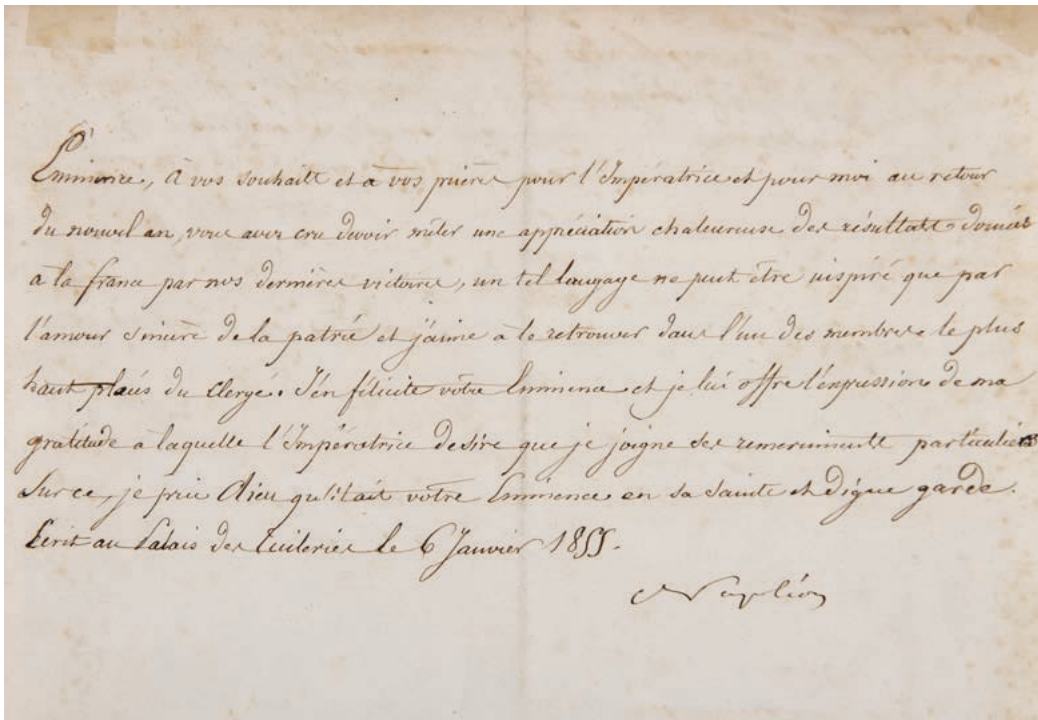 Eminence, à vos souhaits et à vos prières pour l'Impératrice et pour moi au retour
du nouvel an, vous avez cru devoir mêler une appréciation chaleureuse des résultats donnés
à la france par nos dernières victoires, un tel langage ne peut être inspiré que par
l'amour sincère de la patrie et j'aime à le retrouver dans l'un des membres le plus
haut placés du Clergé. J'en félicite votre Eminence et je lui offre l'expression de ma
gratitude à laquelle l'Impératrice desire que je joigne ses remerciments particuliers
Sur ce, je prie Dieu qu'il ait votre Eminence en sa sainte et digne garde.
Ecrit au Palais des Tuileries le 6 Janvier 1855.
Napoléon